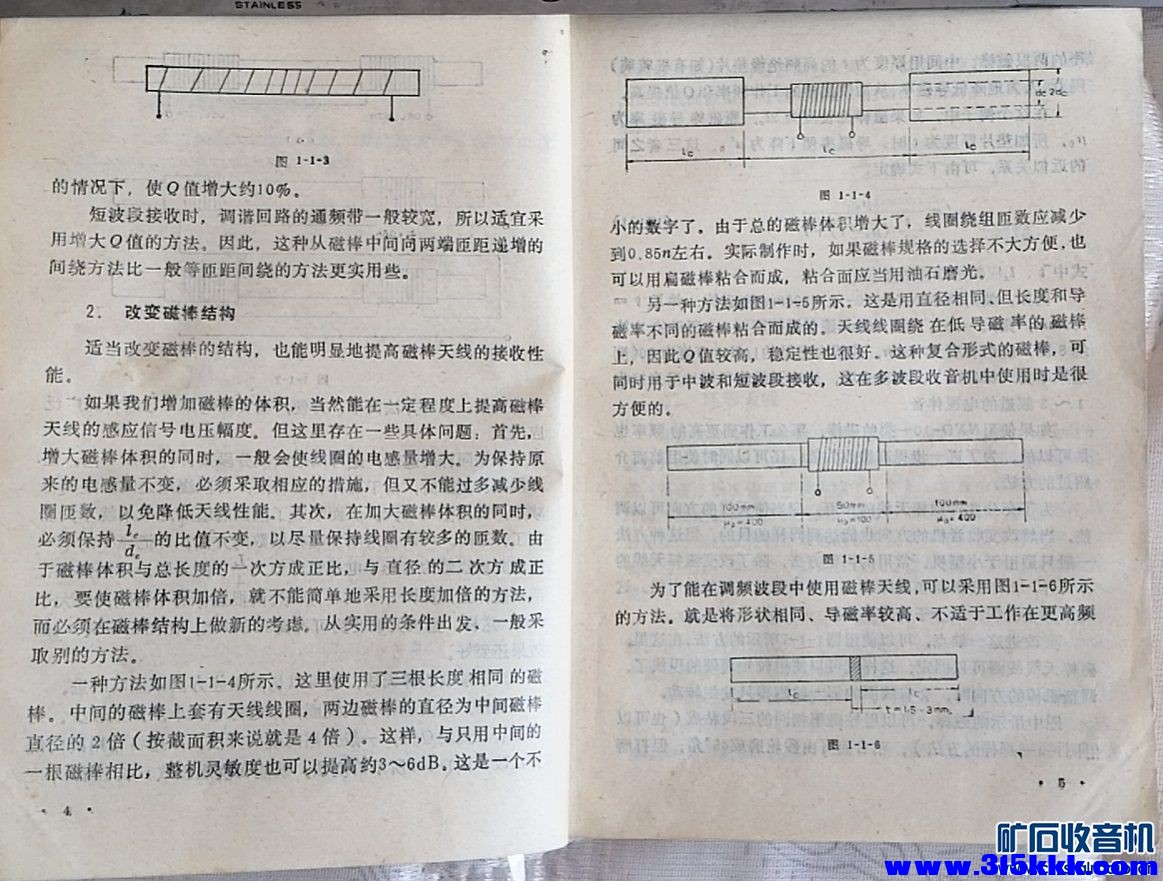 STAINLESS
图 1-1-3
的情况下，使Q值增大约10%。
短波段接收时，调谐回路的通频带一般较宽，所以适宜采
用增大Q值的方法。因此，这种从磁棒中间向两端匝距递增的
间绕方法比一般等匝距间绕的方法更实用些。
2. 改变磁棒结构
适当改变磁棒的结构，也能明显地提高磁棒天线的接收性
能。
如果我们增加磁棒的体积，当然能在一定程度上提高磁棒
天线的感应信号电压幅度。但这里存在一些具体问题：首先，
增大磁棒体积的同时，一般会使线圈的电感量增大。为保持原
来的电感量不变，必须采取相应的措施，但又不能过多减少线
圈匝数，以免降低天线性能。其次，在加大磁棒体积的同时，
必须保持 lc/dc 的比值不变，以尽量保持线圈有较多的匝数。由
于磁棒体积与总长度的一次方成正比，与直径的二次方成正
比，要使磁棒体积加倍，就不能简单地采用长度加倍的方法，
而必须在磁棒结构上做新的考虑。从实用的条件出发，一般采
取别的方法。
一种方法如图1-1-4所示。这里使用了三根长度相同的磁
棒。中间的磁棒上套有天线线圈，两边磁棒的直径为中间磁棒
直径的2倍（按截面积来说就是4倍）。这样，与只用中间的
一根磁棒相比，整机灵敏度也可以提高约3～6dB。这是一个不
· 4 ·
dc 2dc
lc lc lc
图 1-1-4
小的数字了。由于总的磁棒体积增大了，线圈绕组匝数应减少
到0.85n左右。实际制作时，如果磁棒规格的选择不大方便，也
可以用扁磁棒粘合而成，粘合面应当用油石磨光。
另一种方法如图1-1-5所示。这是用直径相同、但长度和导
磁率不同的磁棒粘合而成的。天线线圈绕在低导磁率的磁棒
上，因此Q值较高，稳定性也很好。这种复合形式的磁棒，可
同时用于中波和短波段接收，这在多波段收音机中使用时是很
方便的。
100mm 50mm 100mm
μ₀=400 μ₀=100 μ₀=400
图 1-1-5
为了能在调频波段中使用磁棒天线，可以采用图1-1-6所示
的方法。就是将形状相同、导磁率较高、不适于工作在更高频
lc lc
t=1.5-3mm
图 1-1-6
· 5 ·
矿石收音机
www.315kkk.com